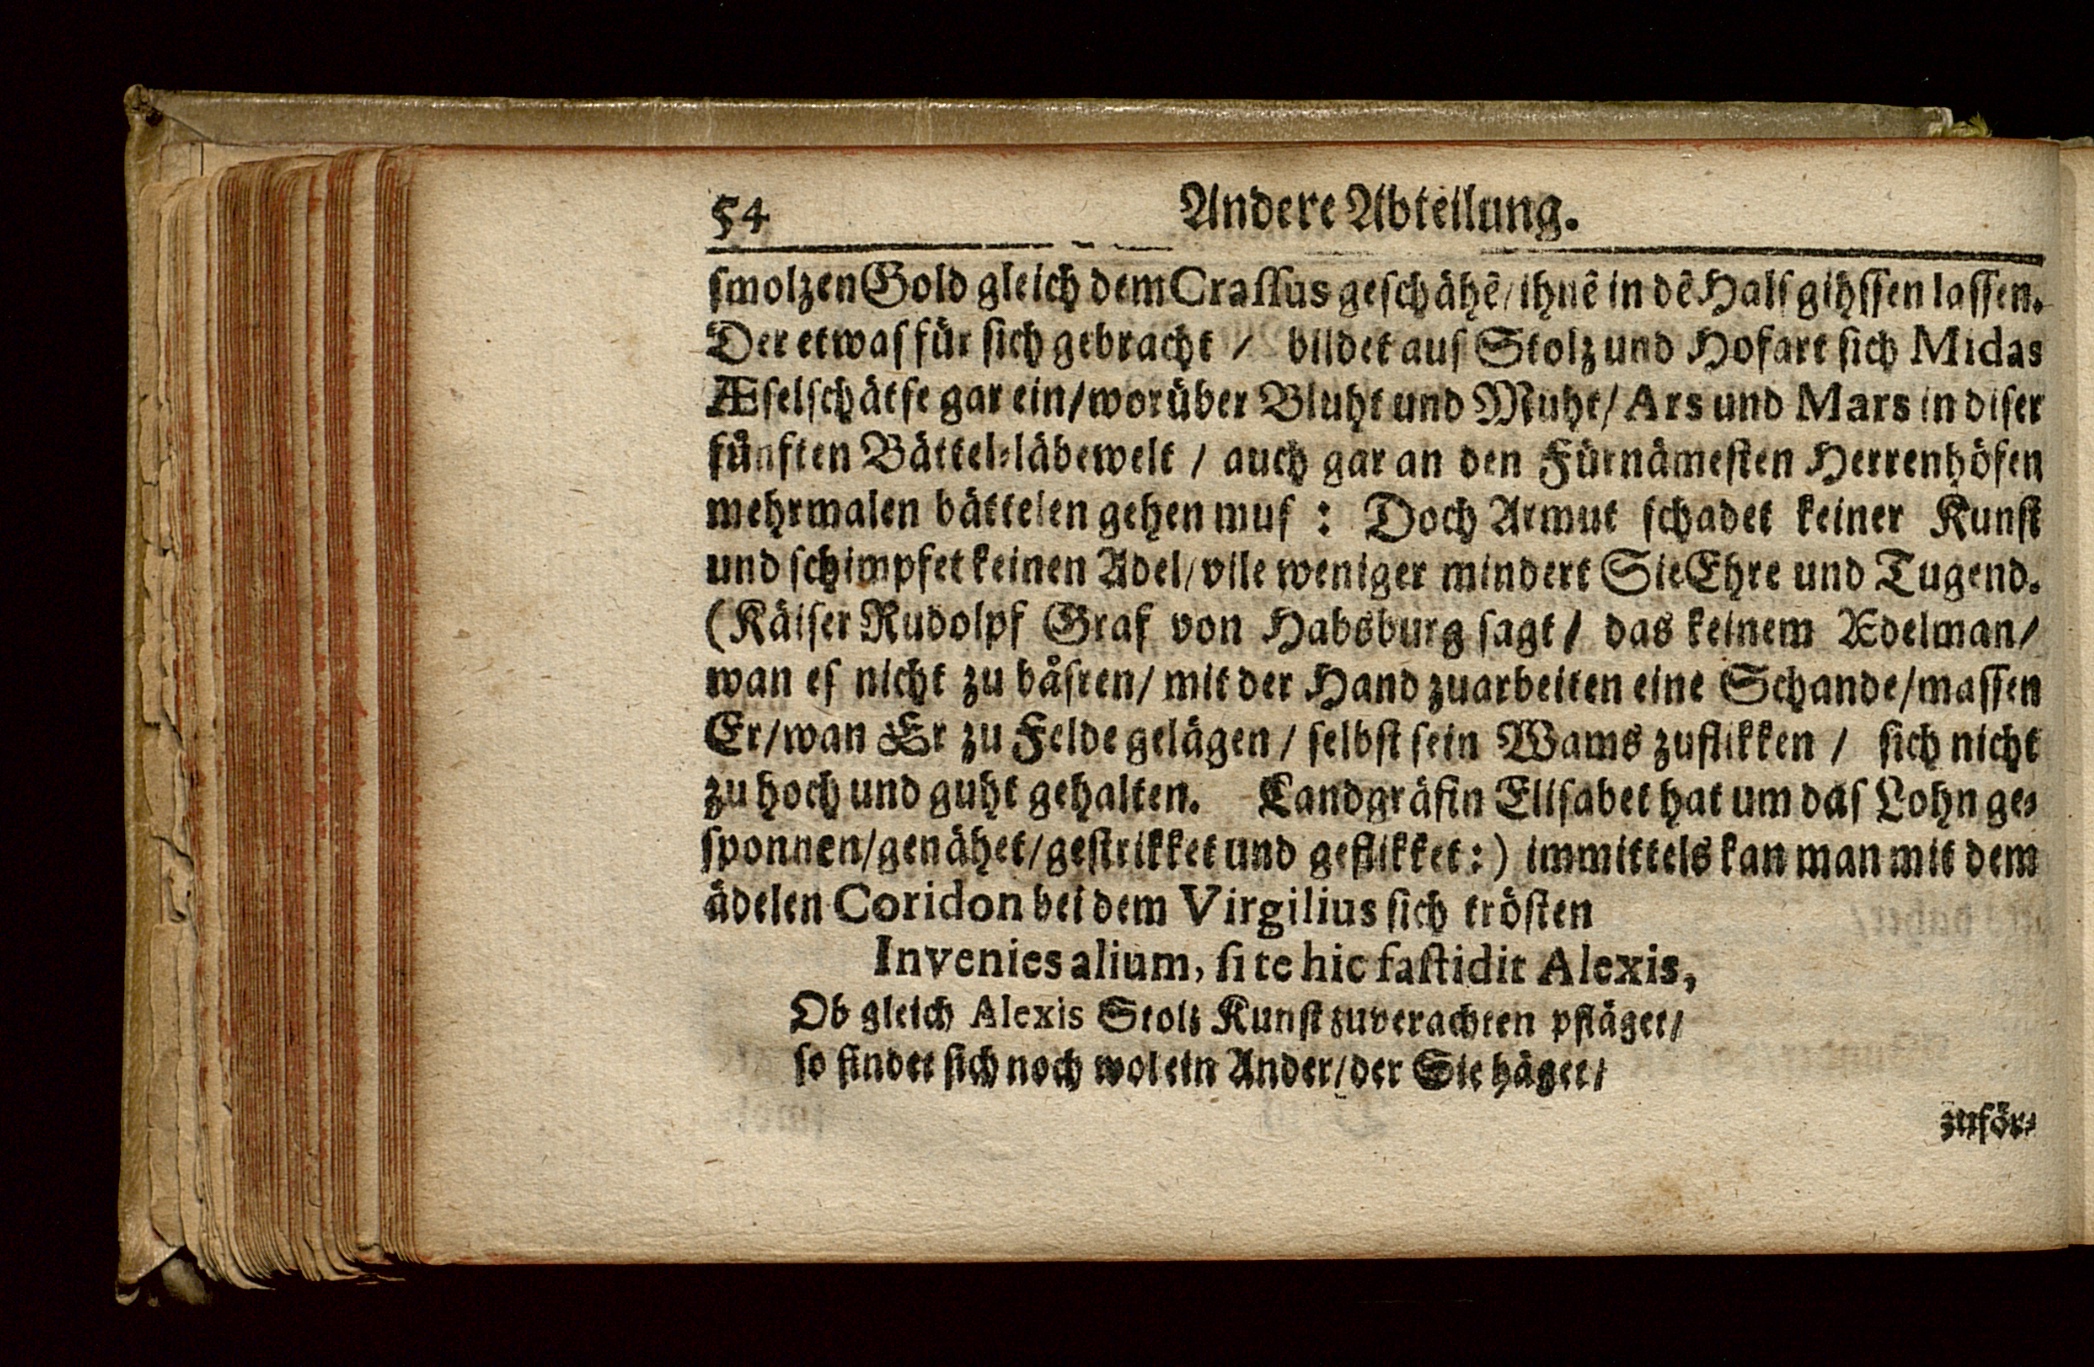 54 Andere Abteilung.
ſmolzen Gold gleich dem Craſſus geſchähẽ/ ihnẽ in dẽ Halſ gihſſen laſſen.
Der etwaſ für ſich gebracht / bildet auſ Stolz und Hofart ſich Midas
Æſelſchätſe gar ein/ worüber Bluht und Muht/ Ars und Mars in diſer
fünften Bättel⸗läbewelt / auch gar an den Fürnämeſten Herrenhöfen
mehrmalen bättelen gehen muſ : Doch Armut ſchadet keiner Kunſt
und ſchimpfet keinen Adel/ vile weniger mindert Sie Ehre und Tugend.
(Käiſer Rudolpf Graf von Habsburg ſagt/ das keinem Ædelman/
wan eſ nicht zu båſren/ mit der Hand zuarbeiten eine Schande/ maſſen
Er/ wan Er zu Felde gelägen / ſelbſt ſein Wams zuflikken / ſich nicht
zu hoch und guht gehalten. Landgräfin Eliſabet hat um daſ Lohn ge⸗
ſponnen/ genähet/ geſtrikket und geflikket:) immittels kan man mit dem
ädelen Coridon bei dem Virgilius ſich tröſten
Invenies alium, ſi te hic faſtidit Alexis,
Ob gleich Alexis Stolz Kunſt zuverachten pfläget/
ſo findet ſich noch wol ein Ander/ der Sie häget/
zuför⸗